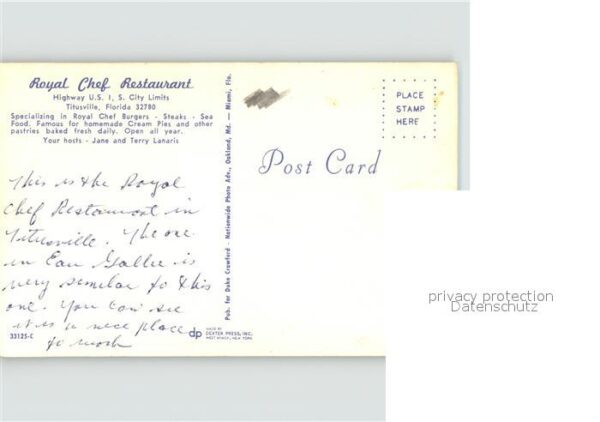 Royal Chef Restaurant
Highway U.S. 1, S. City Limits
Titusville, Florida 32780
Specializing in Royal Chef Burgers - Steaks - Sea
Food. Famous for homemade Cream Pies and other
pastries baked fresh daily. Open all year.
Your hosts - Jane and Terry Lanaris
This is the Royal
Chef Restaurant in
Titusville. The one
in Eau Gallie is
very similar to this
one. You can see
it is a nice place
to work
33125-C
Pub. for Duke Crawford - Nationwide Photo Adv., Oakland, Md. — Miami, Fla.
dp
MADE BY
DEXTER PRESS, INC.
WEST NYACK, NEW YORK
Post Card
PLACE
STAMP
HERE
privacy protection
Datenschutz